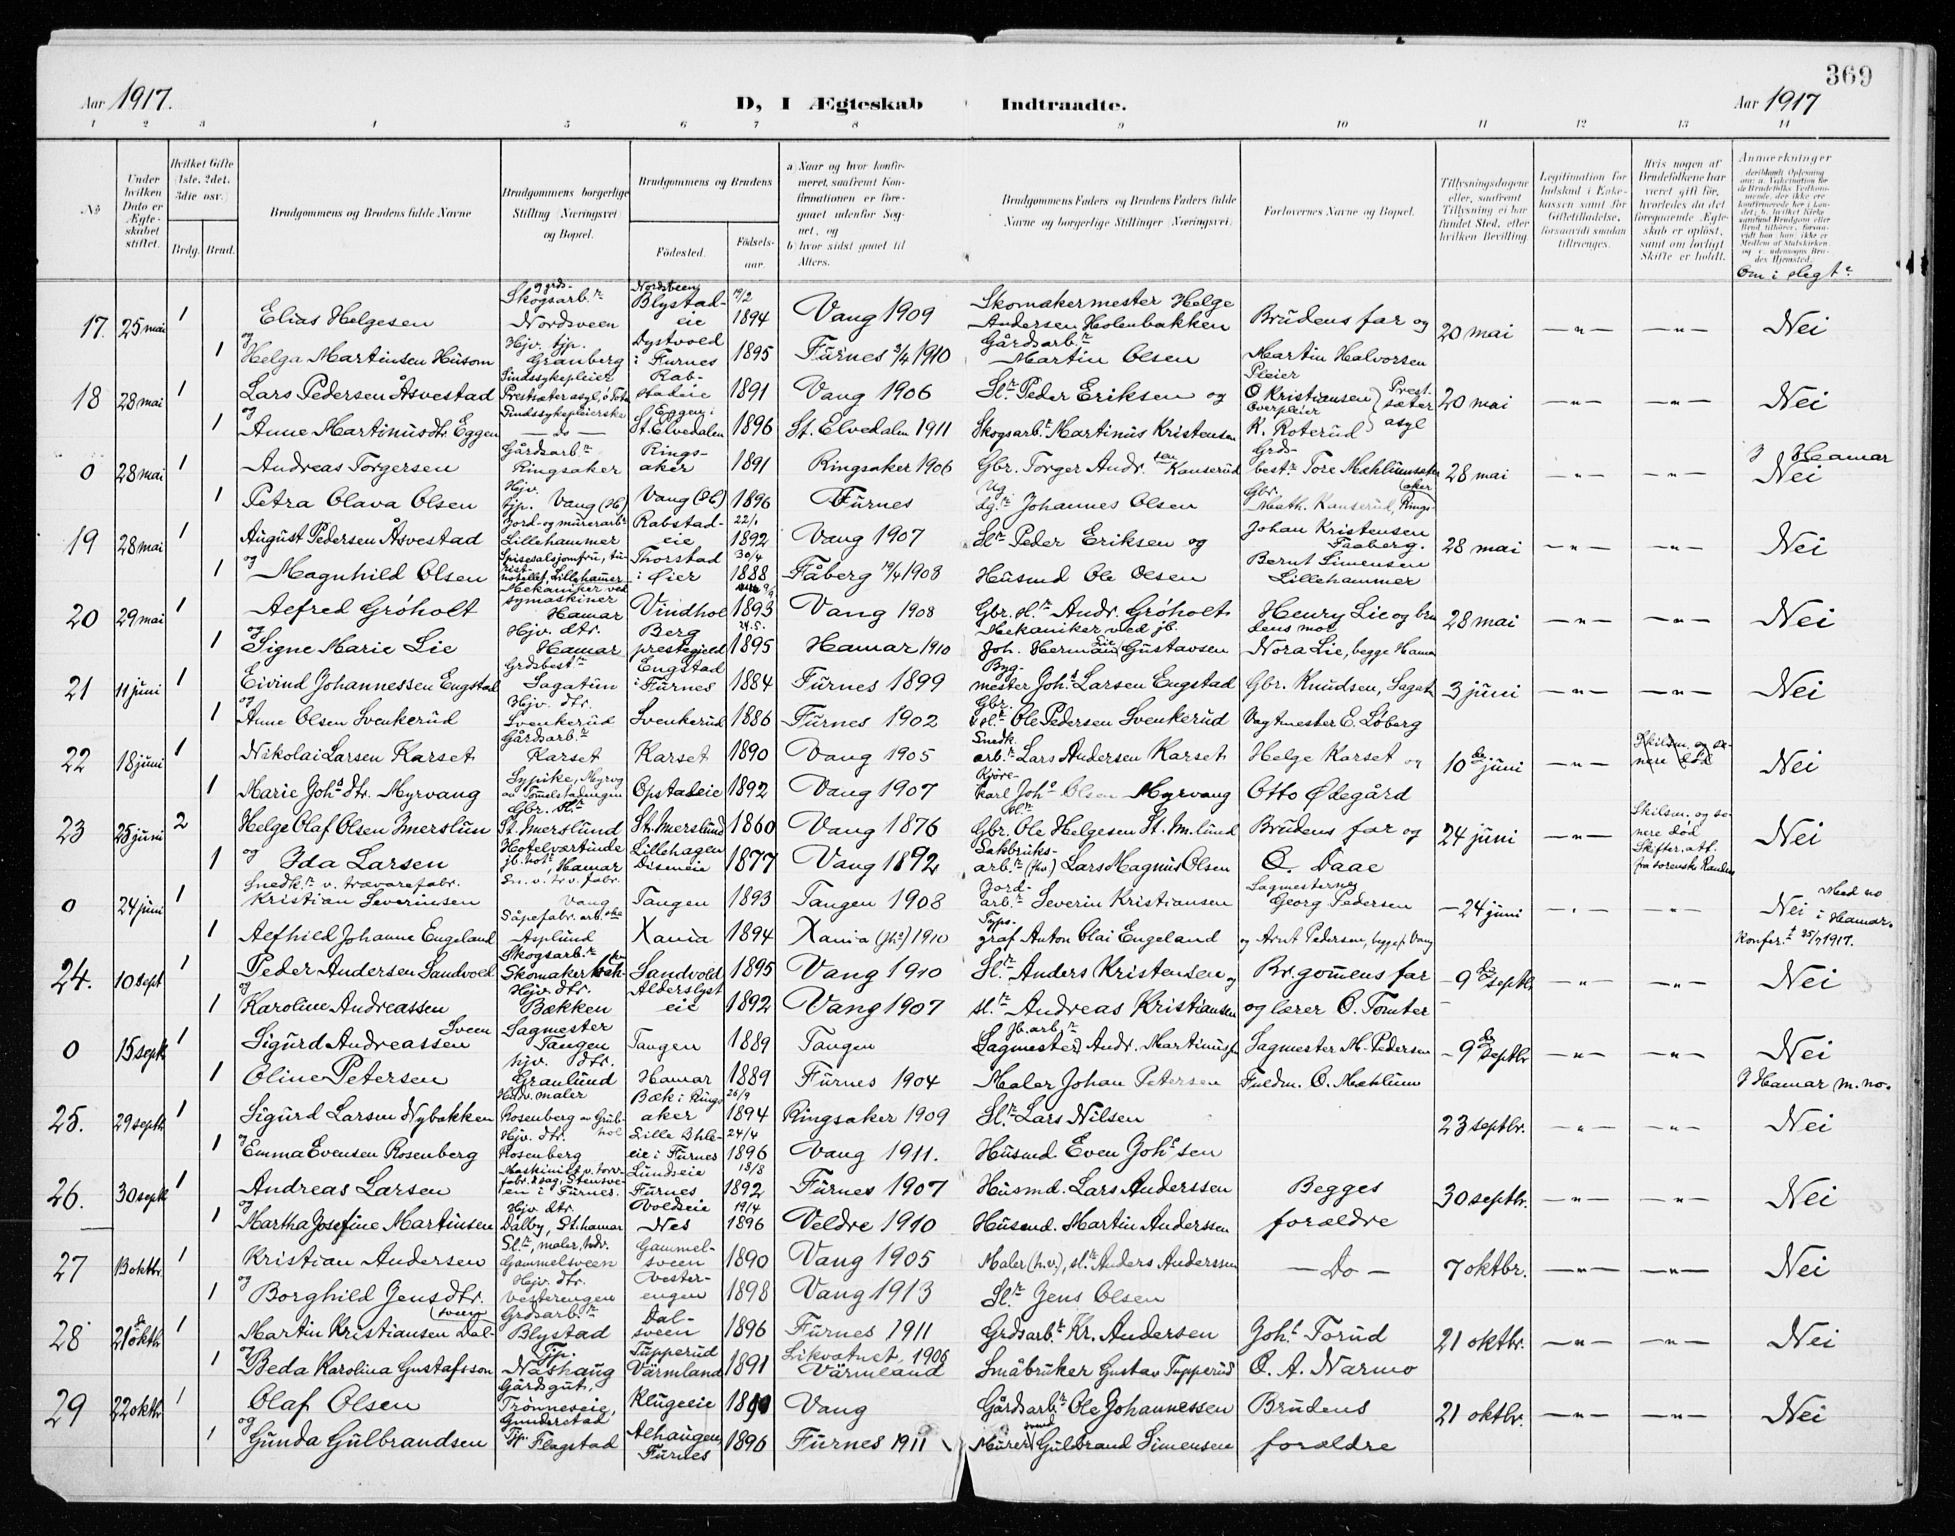 369
Aar 1917. D, I Ægteskab Indtraadte. Aar 1917
1 2 3 4 5 6 7 8 9 10 11 12 13 14
No
Under hvilken Dato er Ægteskabet stiftet.
Hvilket Gifte (1ste, 2det, 3die osv.)
Brdg. Brud.
Brudgommens og Brudens fulde Navne
Brudgommens borgerlige Stilling (Næringsvei) og Bopæl.
Brudgommens og Brudens
Fødested. Fødselsaar.
a) Naar og hvor konfirmeret, saafremt Konfirmationen er foregaaet udenfor Sognet, og
b) hvor sidst gaaet til Alters.
Brudgommens Faders og Brudens Faders fulde Navne og borgerlige Stillinger (Næringsvei).
Forlovernes Navne og Bopæl.
Tillysningsdagene eller, saafremt Tillysning ei har fundet Sted, efter hvilken Bevilling.
Legitimation for Indskud i Enkekassen samt for Giftetilladelse, forsaavidt saadan tiltrænges.
Hvis nogen af Brudefolkene har været gift før, hvorledes da det foregaaende Ægteskab er opløst, samt om lovligt Skifte er holdt.
Anmerkninger
Om i slegt
17. 25 mai 1 Elias Helgesen Skogsarb. Nordsveen Nordsveen Blystadeie 19/2 1894 Vang 1909 Skomakermester Helge Andersen Holenbakken Brudens far og 20 mai —"— —"— Nei
og 1 Helga Martinsen Husom Hjv. tjp. Granberg Dystvold i Furnes 1895 Furnes 3/4 1910 Gårdsarb. Martin Olsen Martin Halvorsen
18 28 mai 1 Lars Pedersen Åsvestad Sindssykepleier Prestsæter asyl, ö Toten Rabstadeie 1891 Vang 1906 Sl. Peder Eriksen og Pleier O Kristiansen Prestsæter asyl 20 mai —"— —"— Nei
og 1 Anne Martinusdtr. Eggen Sindssykepleierske — do — Eggen i St. Elvedalen 1896 St. Elvedalen 1911 Skogsarb. Martinus Kristensen Overpleier K. Roterud
0 28 mai 1 Andreas Torgersen Gårdsarb. Ringsaker Ringsaker 1891 Ringsaker 1906 Gbr. Torger Andr.sen Kanserud Grdbest. Tore Mæhlumsaker 28 mai —"— —"— I Hamar Nei
1 Petra Olava Olsen Hjv. tjp. Vang (H) Vang (H) 1896 Furnes Johannes Olsen Gbr. Math. Kanserud, Rings-
19 28 mai 1 August Pedersen Åsvestad Jord- og murerarb. Lillehammer Rabstadeie 22/1 1892 Vang 1907 Sl. Peder Eriksen og Johan Kristensen Faaberg. 28 mai —"— —"— Nei
og 1 Magnhild Olsen Spisesalsjomfru, turist-hotellet, Lillehamer Thorstad i Øier 30/4 1888 Fåberg 19/4 1908 Husmd Ole Olsen Bernt Simensen Lillehammer
20 29 mai 1 Alfred Gröholt Mekaniker ved symaskiner Hamar Vindhol 1893 Vang 1908 Gbr. sl. Andr. Gröholt Henry Lie og bru 28 mai —"— —"— Nei
og 1 Signe Marie Lie Hjv. dtr. Hamar Berg prestegjeld 24.5. 1895 Hamar 1910 Mekaniker ved jb. Joh. Herman Lie Gustavsen dens mor Nora Lie, begge Hamar
21 11 juni 1 Eivind Johannessen Engstad Grdsbest. Sagatun Engstad i Furnes 1884 Furnes 1899 Bygmester Joh. Larsen Engstad Gbr. Knudsen, Sagat. 3 juni —"— —"— Nei
og 1 Anne Olsen Svenkerud Hjv. dtr. Svenkerud Svenkerud 1886 Furnes 1902 Gbr. Ole Pedersen Svenkerud Vagtmester E. Löberg
22 18 juni 1 Nikolai Larsen Karset Gårdsarb. Karset Karset 1890 Vang 1905 Snedk. arb. Lars Andersen Karset Helge Karset og 10 juni —"— Nei
1 Marie Joh. dtr. Myrvang Sypike, Myrvg Opstadeie 1892 Vang 1907 Kjörekarl Joh. Olsen Myrvang Otto Ødegård
23 25 juni 2 Helge Olaf Olsen Imerslun Gbr. St. Imerslund St. Imerslund 1860 Vang 1876 Gbr. Ole Helgesen St. Im.lund Brudens far og 24 juni —"— Skilsm. og senere död Nei
og 1 Ida Larsen Hotelværtinde jb. hot., Hamar Lillehagen Diseneie 1877 Vang 1892 Sakbruksarb. Lars Magnus Olsen O. Daae Skifter. att.
0 24 juni 1 Kristian Severinsen Snedk. v. travarefabr. Vang Tangen 1893 Tangen 1908 Jordarb. Severin Kristiansen Sagmesterne Georg Pedersen —24 juni Nei i Hamar.
1 Alfhild Johanne Engeland Såpefabr. arb.ske Asplund Xania 1894 Xania 1910 Typograf Anton Olai Engeland og Arnt Pedersen, begge p. Vang Konfer. 25/7 1917.
24. 10 sept 1 Peder Andersen Sandvold Skogsarb. Skomakerbek Sandvold 1895 Vang 1910 Sl. Anders Kristensen og Br.gomens far —9 septbr —"— —"— Nei
og 1 Karoline Andreassen Hjv. dtr. Bækken Alderslysteie 1892 Vang 1907 sl. Andreas Kristiansen og lærer O. Tomter
0 15 sept 1 Sigurd Andreassen Sveen Sagmester Tangen Tangen 1889 Tangen Jb.arb. Sagmester Andr. Martinusen Sagmester M. Pedersen —9 septbr —"— —"— Nei
1 Oline Petersen Hjv. dtr. Granlund Hamar 1889 Furnes 1904 Maler Johan Petersen Fuldm. O. Mæhlum I Hamar m. no.
25. 29 septb 1 Sigurd Larsen Nybakken Hdv. maler Rosenberg av Grubhol Bæk i Ringsaker 26/9 1894 Ringsaker 1909 Sl. Lars Nilsen 23 septbr. —"— —"— Nei
og 1 Emma Evensen Rosenberg Hjv. dtr. Rosenberg Lille Uhleeie i Furnes 24/4 1896 Vang 1911. Husmd. Even Joh.sen
26. 30 septb 1 Andreas Larsen Maskinist v. torvfabr. & sag, Stensveen i Furnes. Lundseie Furnes 18/8 1892 Furnes 1907 Husmd. Lars Anderssen Begges 30 septbr. —"— —"— Nei
og 1 Martha Josefine Martinsen Hjv dtr. Dalby, St. hamar Voldseie Nes 19/4 1896 Veldre 1910 Husmd. Martin Anderssen forældre
27 13 oktbr. 1 Kristian Andersen Sl., maler, hdv. Gammelsveen Gammelsveen 1890 Vang 1905 Maler (h.v.), sl. Anders Anderssen — Do — 7 oktbr. —"— —"— Nei
og 1 Borghild Jensdtr. Hjv. dtr. Vesterengen Vesterengen 1898 Vang 1913 Sl. Jens Olsen
28 21 oktb 1 Martin Kristiansen Dalsveen Grdsarb. Blystad Dalsveen 1896 Furnes 1911 Grdsarb. Kr. Andersen Joh. Torud 21 oktbr. —"— —"— Nei
og 1 Beda Karolina Gustafsson Tjp. Nashaug Tupperud Värmland 1891 Likvatnet, 1906 Värmland Småbruker Gustav Tupperud O. A. Narmo
29 22 oktb 1 Olaf Olsen Gårdsgut, Trönneseie, Klugeeie 1890 Vang Gårdsarb. Ole Johannessen Brudens 21 oktbr. —"— —"— Nei
og 1 Gunda Gulbrandsen Gunderstad Tjp. Flagstad Alhaugen Furnes 1896 Furnes 1911 Murer Gulbrand Simensen forældre